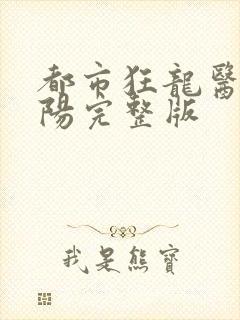 都市狂龍醫
陽完整版
我是熊寶